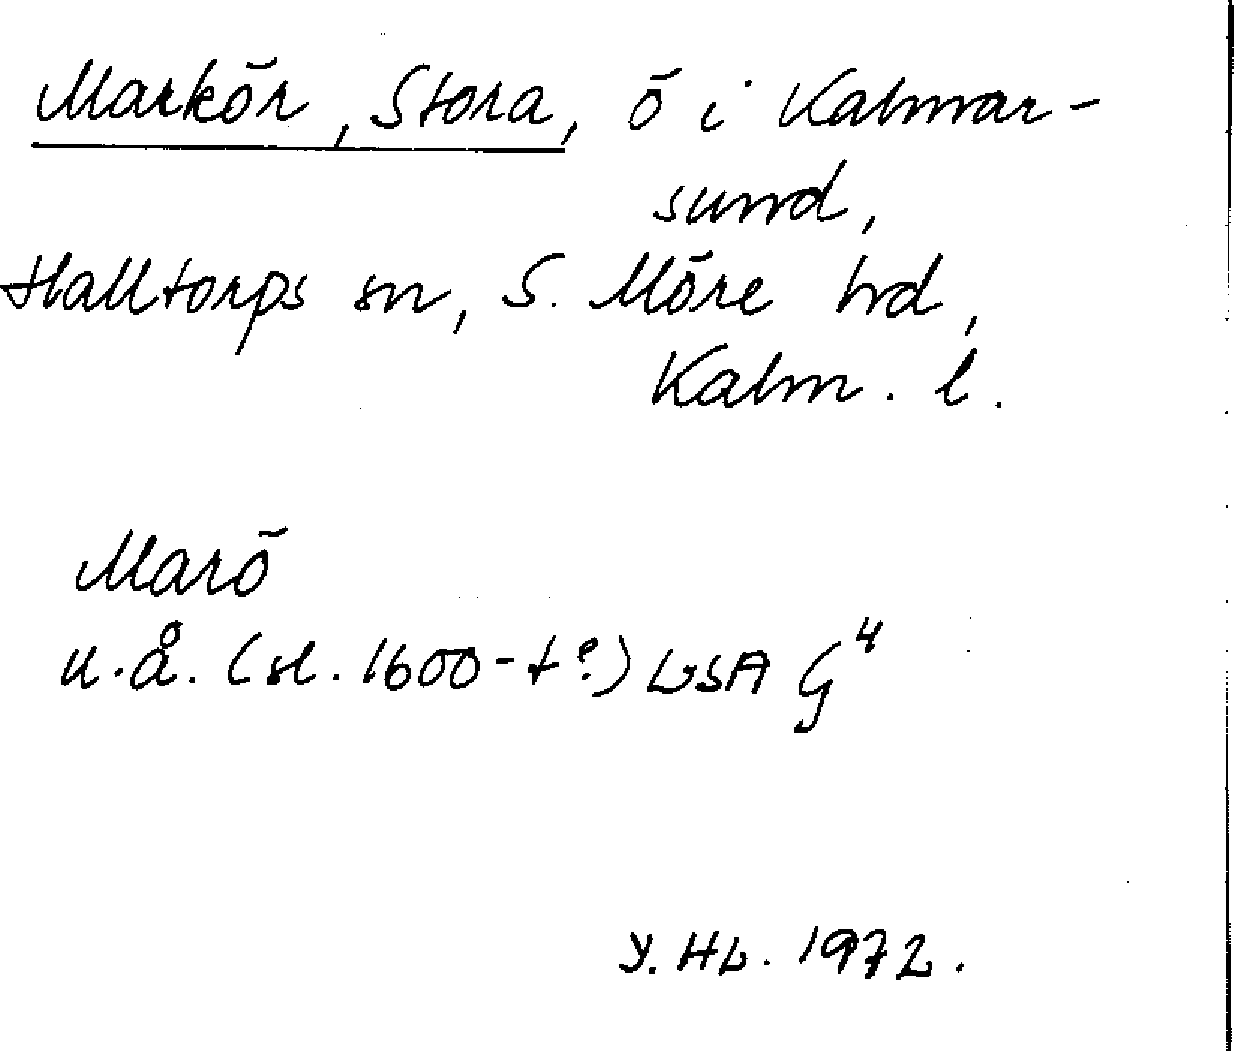 Markör, Stora, ö i Kalmar-
sund,
Halltorps sn, S. Möre hd,
Kalm. l.
Marö
u.å. (sl. 1600-t?) LSA G4
Y. Hb. 1972.